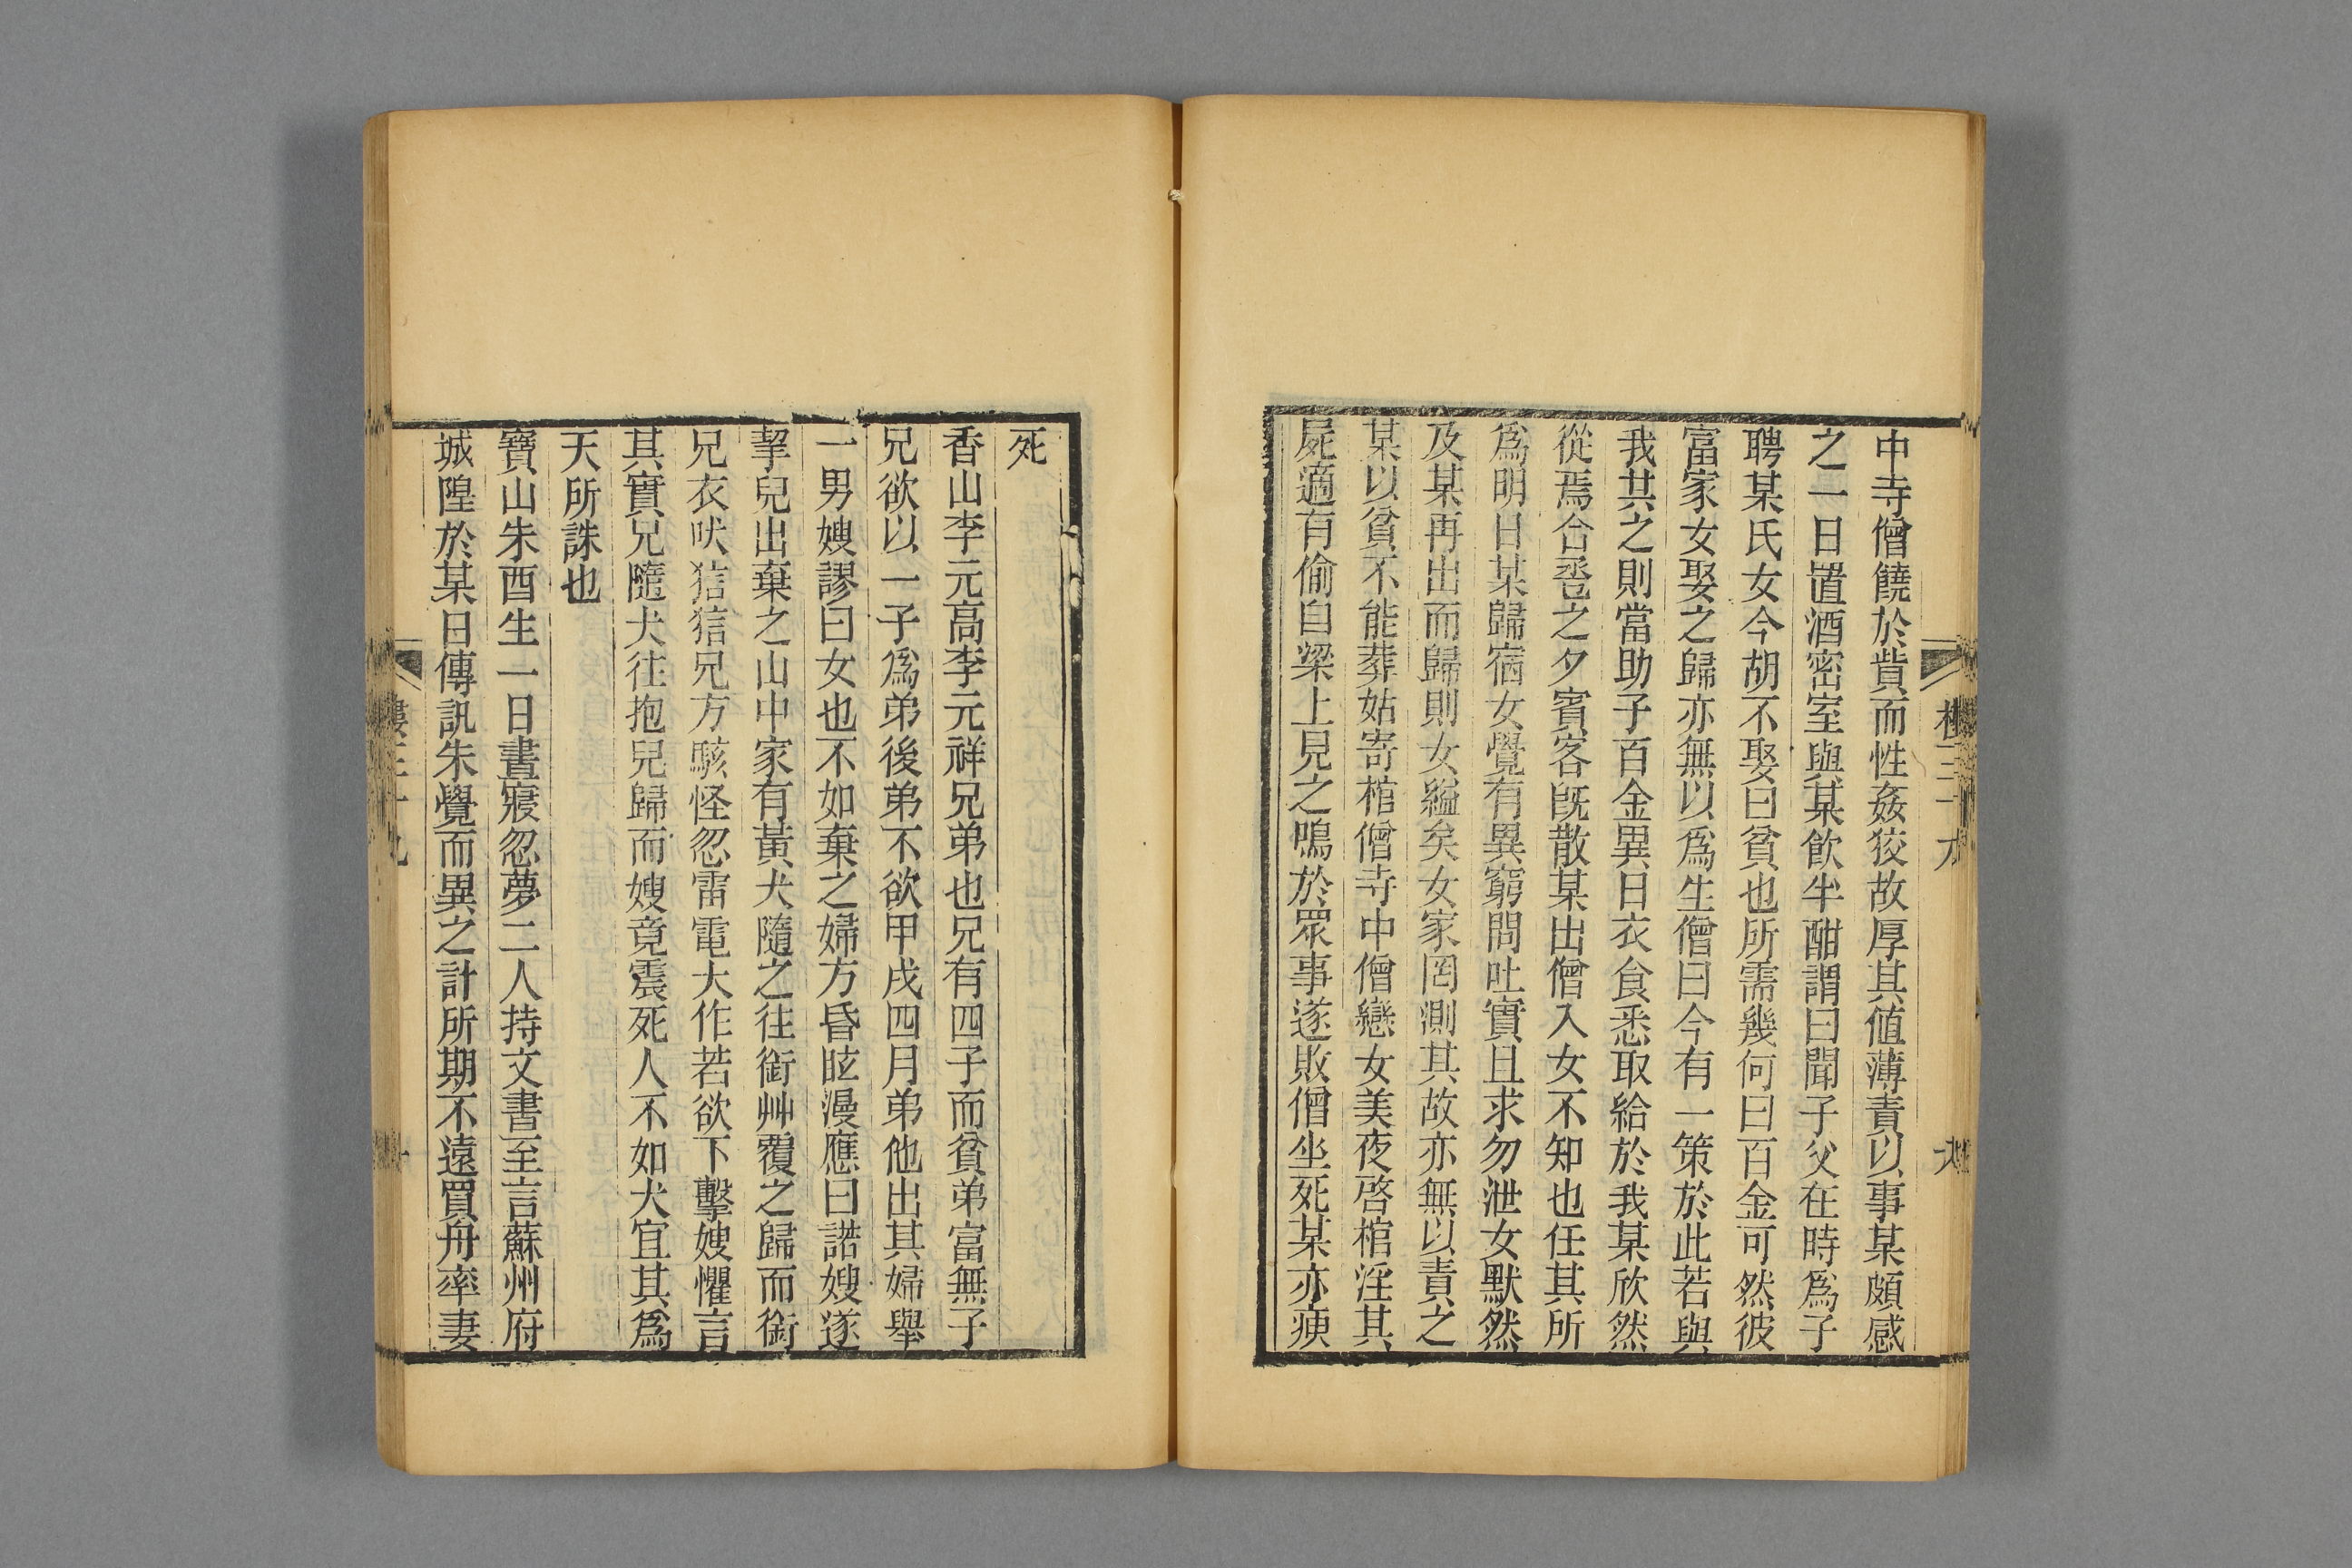 中寺僧饒於貲而性姦狡故厚其值薄責以事某頗感
之一日置酒密室與某飲半酣謂曰聞子父在時爲子
聘某氏女今胡不娶曰貧也所需幾何曰百金可然彼
富家女娶之歸亦無以爲生僧曰今有一策於此若與
我共之則當助子百金異日衣食悉取給於我某欣然
從焉合卺之夕賓客旣散某出僧入女不知也任其所
爲明日某歸宿女覺有異窮問吐實且求勿泄女默然
及某再出而歸則女縊矣女家罔測其故亦無以責之
某以貧不能葬姑寄棺僧寺中僧戀女美夜啓棺淫其
屍適有偷自梁上見之鳴於眾事遂敗僧坐死某亦瘐
死
香山李元高李元祥兄弟也兄有四子而貧弟富無子
兄欲以一子爲弟後弟不欲甲戌四月弟他出其婦舉
一男嫂謬曰女也不如棄之婦方昏眩漫應曰諾嫂遂
挈兒出棄之山中家有黃犬隨之往銜艸覆之歸而銜
兄衣吠狺狺兄方駭怪忽雷電大作若欲下擊嫂懼言
其實兄隨犬往抱兒歸而嫂竟震死人不如犬宜其爲
天所誅也
寶山朱酉生一日晝寢忽夢二人持文書至言蘇州府
城隍於某日傳訊朱覺而異之計所期不遠買舟率妻